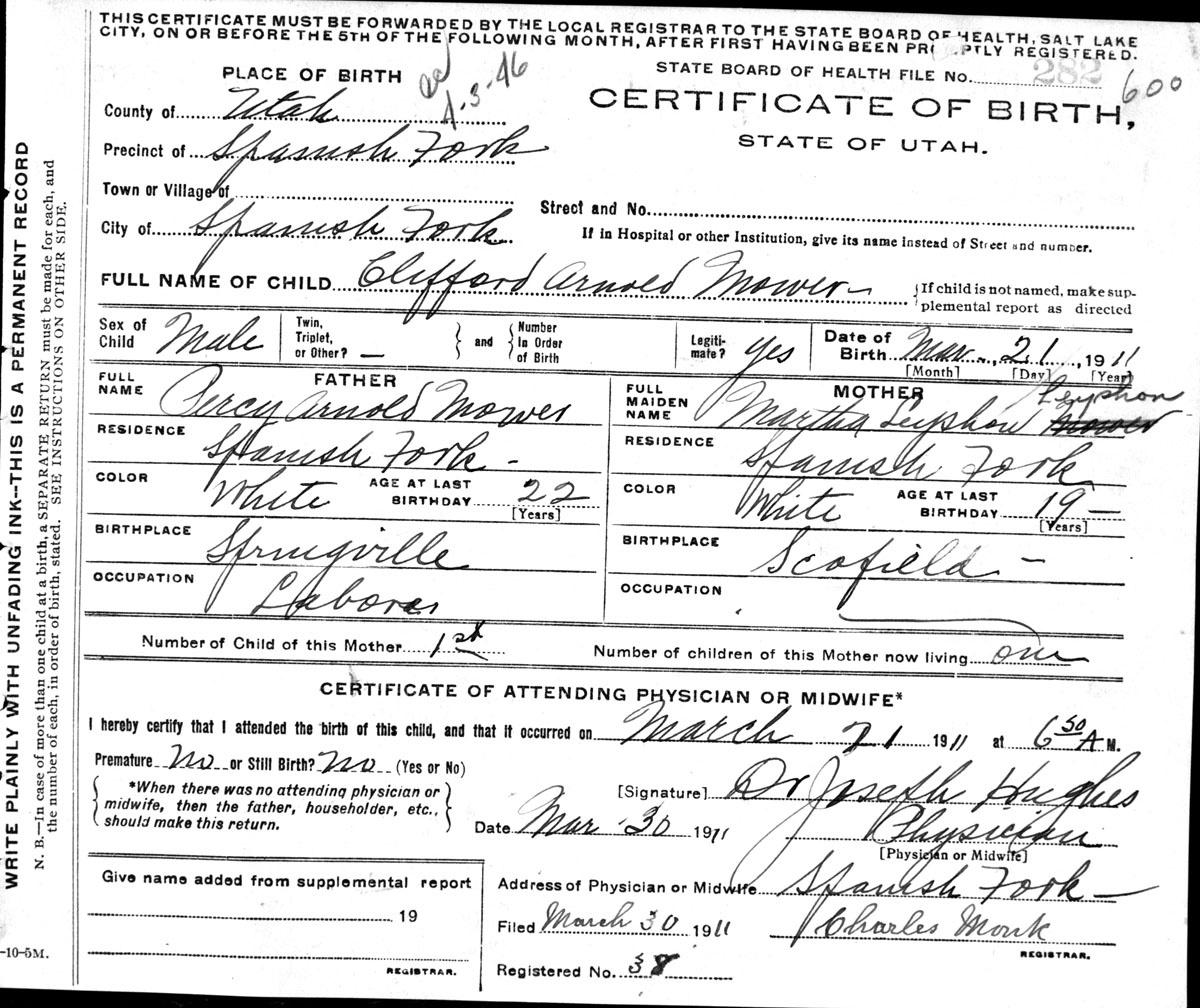 THIS CERTIFICATE MUST BE FORWARDED BY THE LOCAL REGISTRAR TO THE STATE BOARD OF HEALTH, SALT LAKE
CITY, ON OR BEFORE THE 5TH OF THE FOLLOWING MONTH, AFTER FIRST HAVING BEEN PR PTLY REGISTERED.
STATE BOARD OF HEALTH FILE No. 282 600
PLACE OF BIRTH
4-3-46
CERTIFICATE OF BIRTH,
STATE OF UTAH.
County of Utah
Precinct of Spanish Fork
Town or Village of
Street and No.
City of Spanish Fork
If in Hospital or other Institution, give its name instead of Street and number.
FULL NAME OF CHILD Clifford Arnold Mower
{If child is not named, make sup-
plemental report as directed
Sex of Child Male
Twin, Triplet, or Other? —
} and {
Number In Order of Birth
Legiti-mate? yes
Date of Birth Mar., 21, 1911
[Month] [Day] [Year]
FATHER
FULL NAME Percy Arnold Mower
RESIDENCE Spanish Fork -
COLOR White AGE AT LAST BIRTHDAY 22
[Years]
BIRTHPLACE Springville
OCCUPATION Laborer
MOTHER
Leyshon
FULL MAIDEN NAME Martha Leyshon Mower
RESIDENCE Spanish Fork
COLOR White AGE AT LAST BIRTHDAY 19 —
[Years]
BIRTHPLACE Scofield —
OCCUPATION
Number of Child of this Mother 1st
Number of children of this Mother now living one
CERTIFICATE OF ATTENDING PHYSICIAN OR MIDWIFE*
I hereby certify that I attended the birth of this child, and that it occurred on March 21 1911 at 6 50 A M.
Premature No or Still Birth? No (Yes or No)
{*When there was no attending physician or
midwife, then the father, householder, etc.,
should make this return.}
[Signature] Dr Joseph Hughes
Date Mar 30 1911 Physician
[Physician or Midwife]
Give name added from supplemental report
19
REGISTRAR.
Address of Physician or Midwife Spanish Fork —
Filed March 30 1911 Charles Monk
REGISTRAR.
Registered No. 38
-10-5M.
WRITE PLAINLY WITH UNFADING INK--THIS IS A PERMANENT RECORD
N. B.—In case of more than one child at a birth, a SEPARATE RETURN must be made for each, and
the number of each, in order of birth, stated. SEE INSTRUCTIONS ON OTHER SIDE.